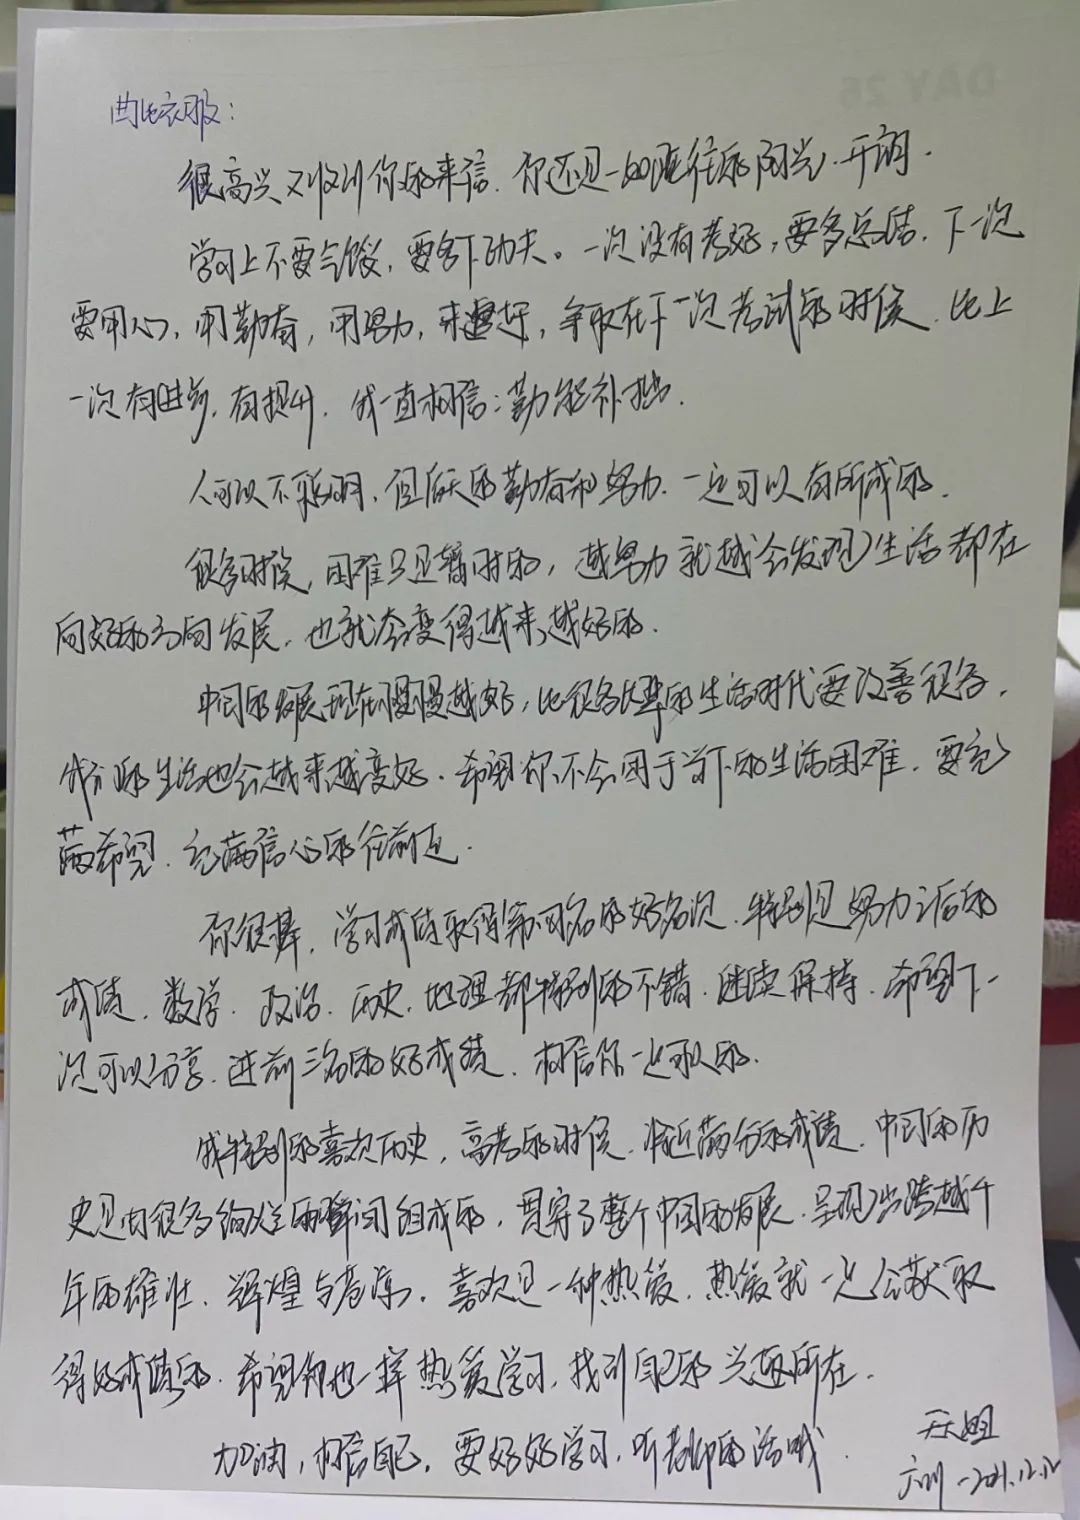 曲比衣服：
很高兴又收到你的来信．你还是一如既往的阳光．开朗．
学习上不要气馁，要多下功夫。一次没有考好，要多总结．下一次
要用心，用勤奋，用努力，来追赶，争取在下一次考试的时候．比上
一次有进步，有提升．我一直相信：勤能补拙．
人可以不聪明，但后天的勤奋和努力．一定可以有所成的．
很多时候，困难只是暂时的，越努力就越会发现生活都在
向好的方向发展．也就会变得越来越好的．
中国的发展现在慢慢越好，比很多长辈的生活时代要改善很多．
我们的生活也会越来越变好．希望你不会困于当下的生活困难．要充
满希望．充满信心的往前走．
你很棒，学习成绩取得第四名的好名次．特别是努力之后的
成绩．数学．政治．历史．地理都特别的不错．继续保持．希望下一
次可以分享．进前三名的好成绩．相信你一定可以的．
我特别的喜欢历史，高考的时候．将近满分的成绩．中国的历
史是由很多绚烂的瞬间组成的，贯穿了整个中国的发展．呈现出跨越千
年的雄壮．辉煌与苍凉．喜欢是一种热爱．热爱就一定会获取
得好成绩的．希望你也一样热爱学习．找到自己的兴趣所在．
加油，相信自己．要好好学习，听老师的话哦．
天姐
广州 - 2021.12.12
DAY 25